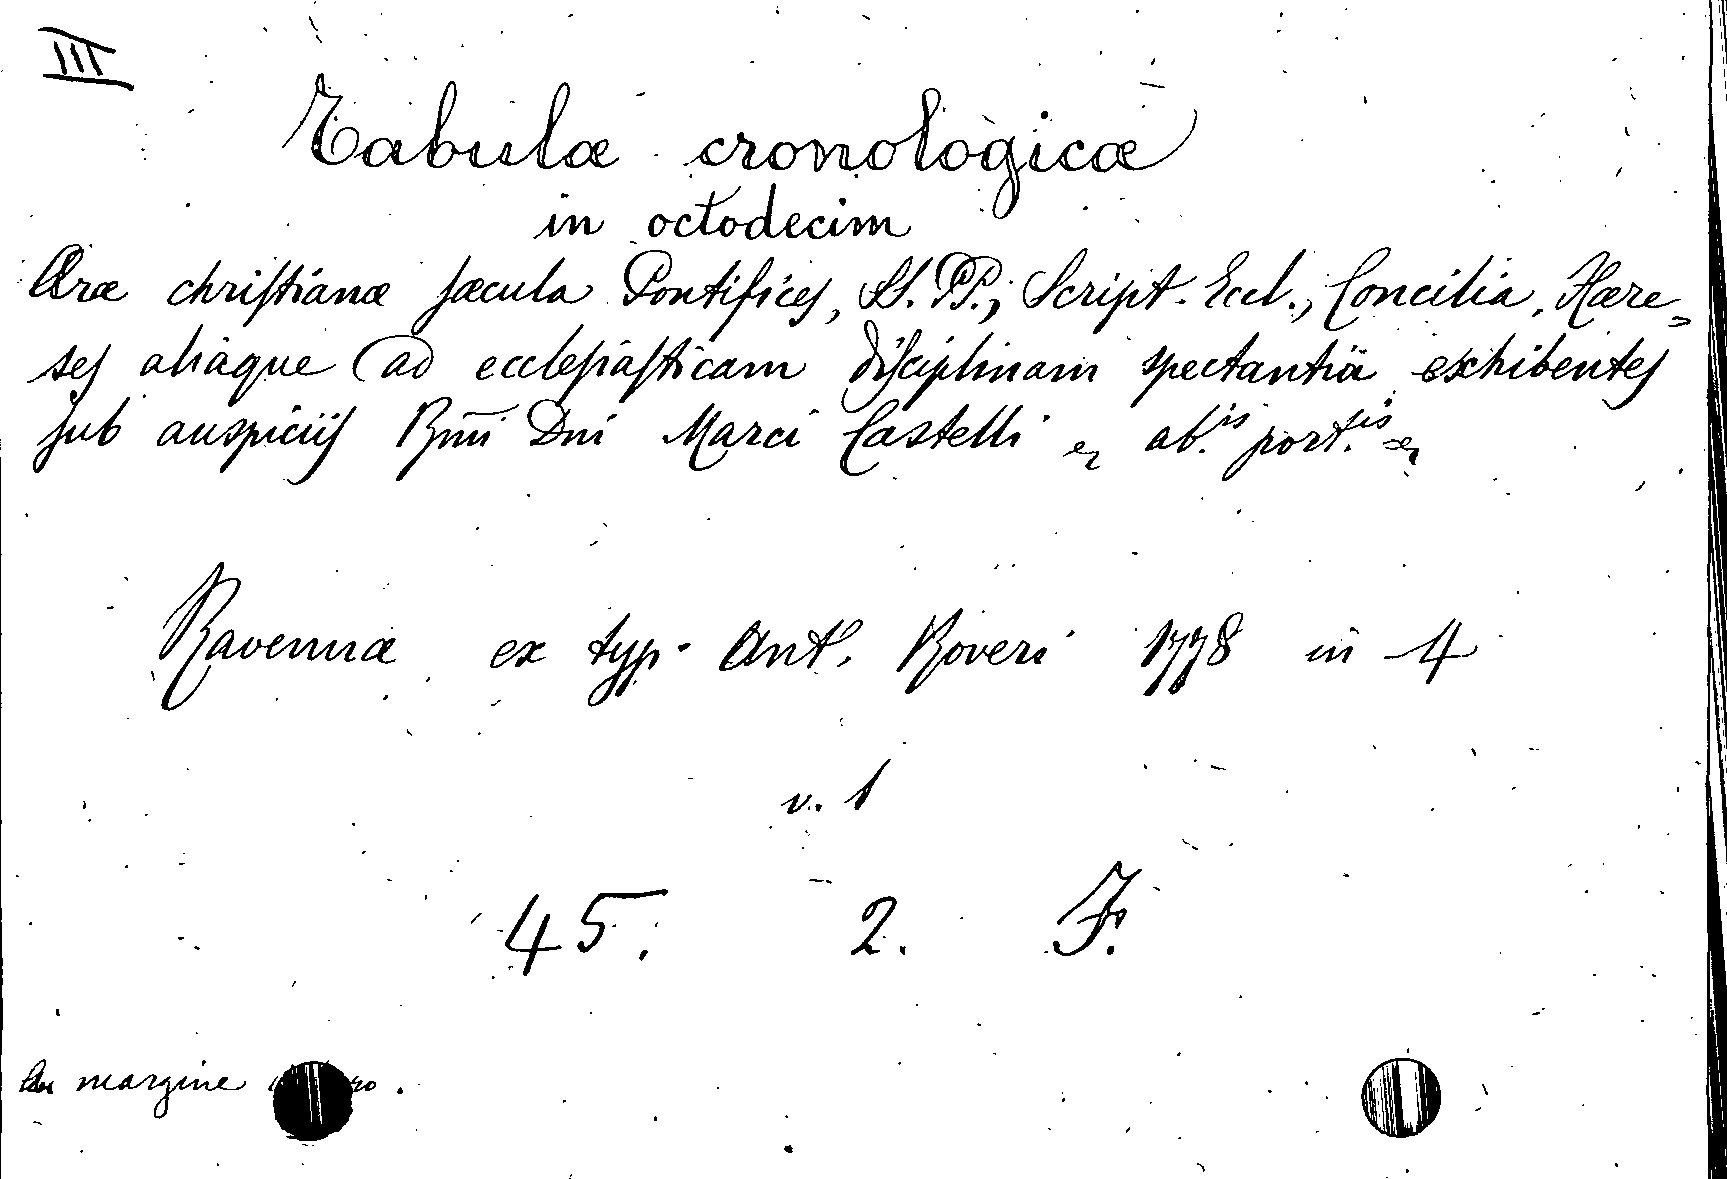 III
Tabulæ cronologicæ
in octodecim
Æræ christianæ sæcula Pontifices, SS. PP., Script. Eccl., Concilia, Hære=
ses aliaque ad ecclesiasticam disciplinam spectantia exhibentes
sub auspiciis Rmi Dni Marci Castelli ab.is port.is
Ravennæ ex typ. Ant. Roveri 1778 in 4
v. 1
45. 2. F.
margine